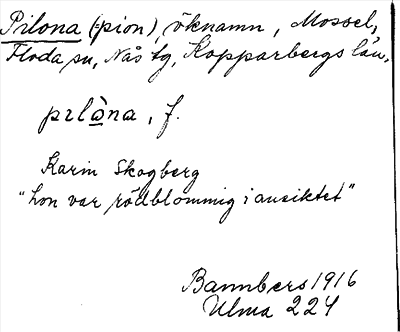 Pilona (pion) öknamn, Mossel,
Floda sn, Nås tg, Kopparbergs län.
pιlò̲na, f.
Karin Skogberg
"hon var rödblommig i ansiktet"
Bannbers 1916
Ulma 224